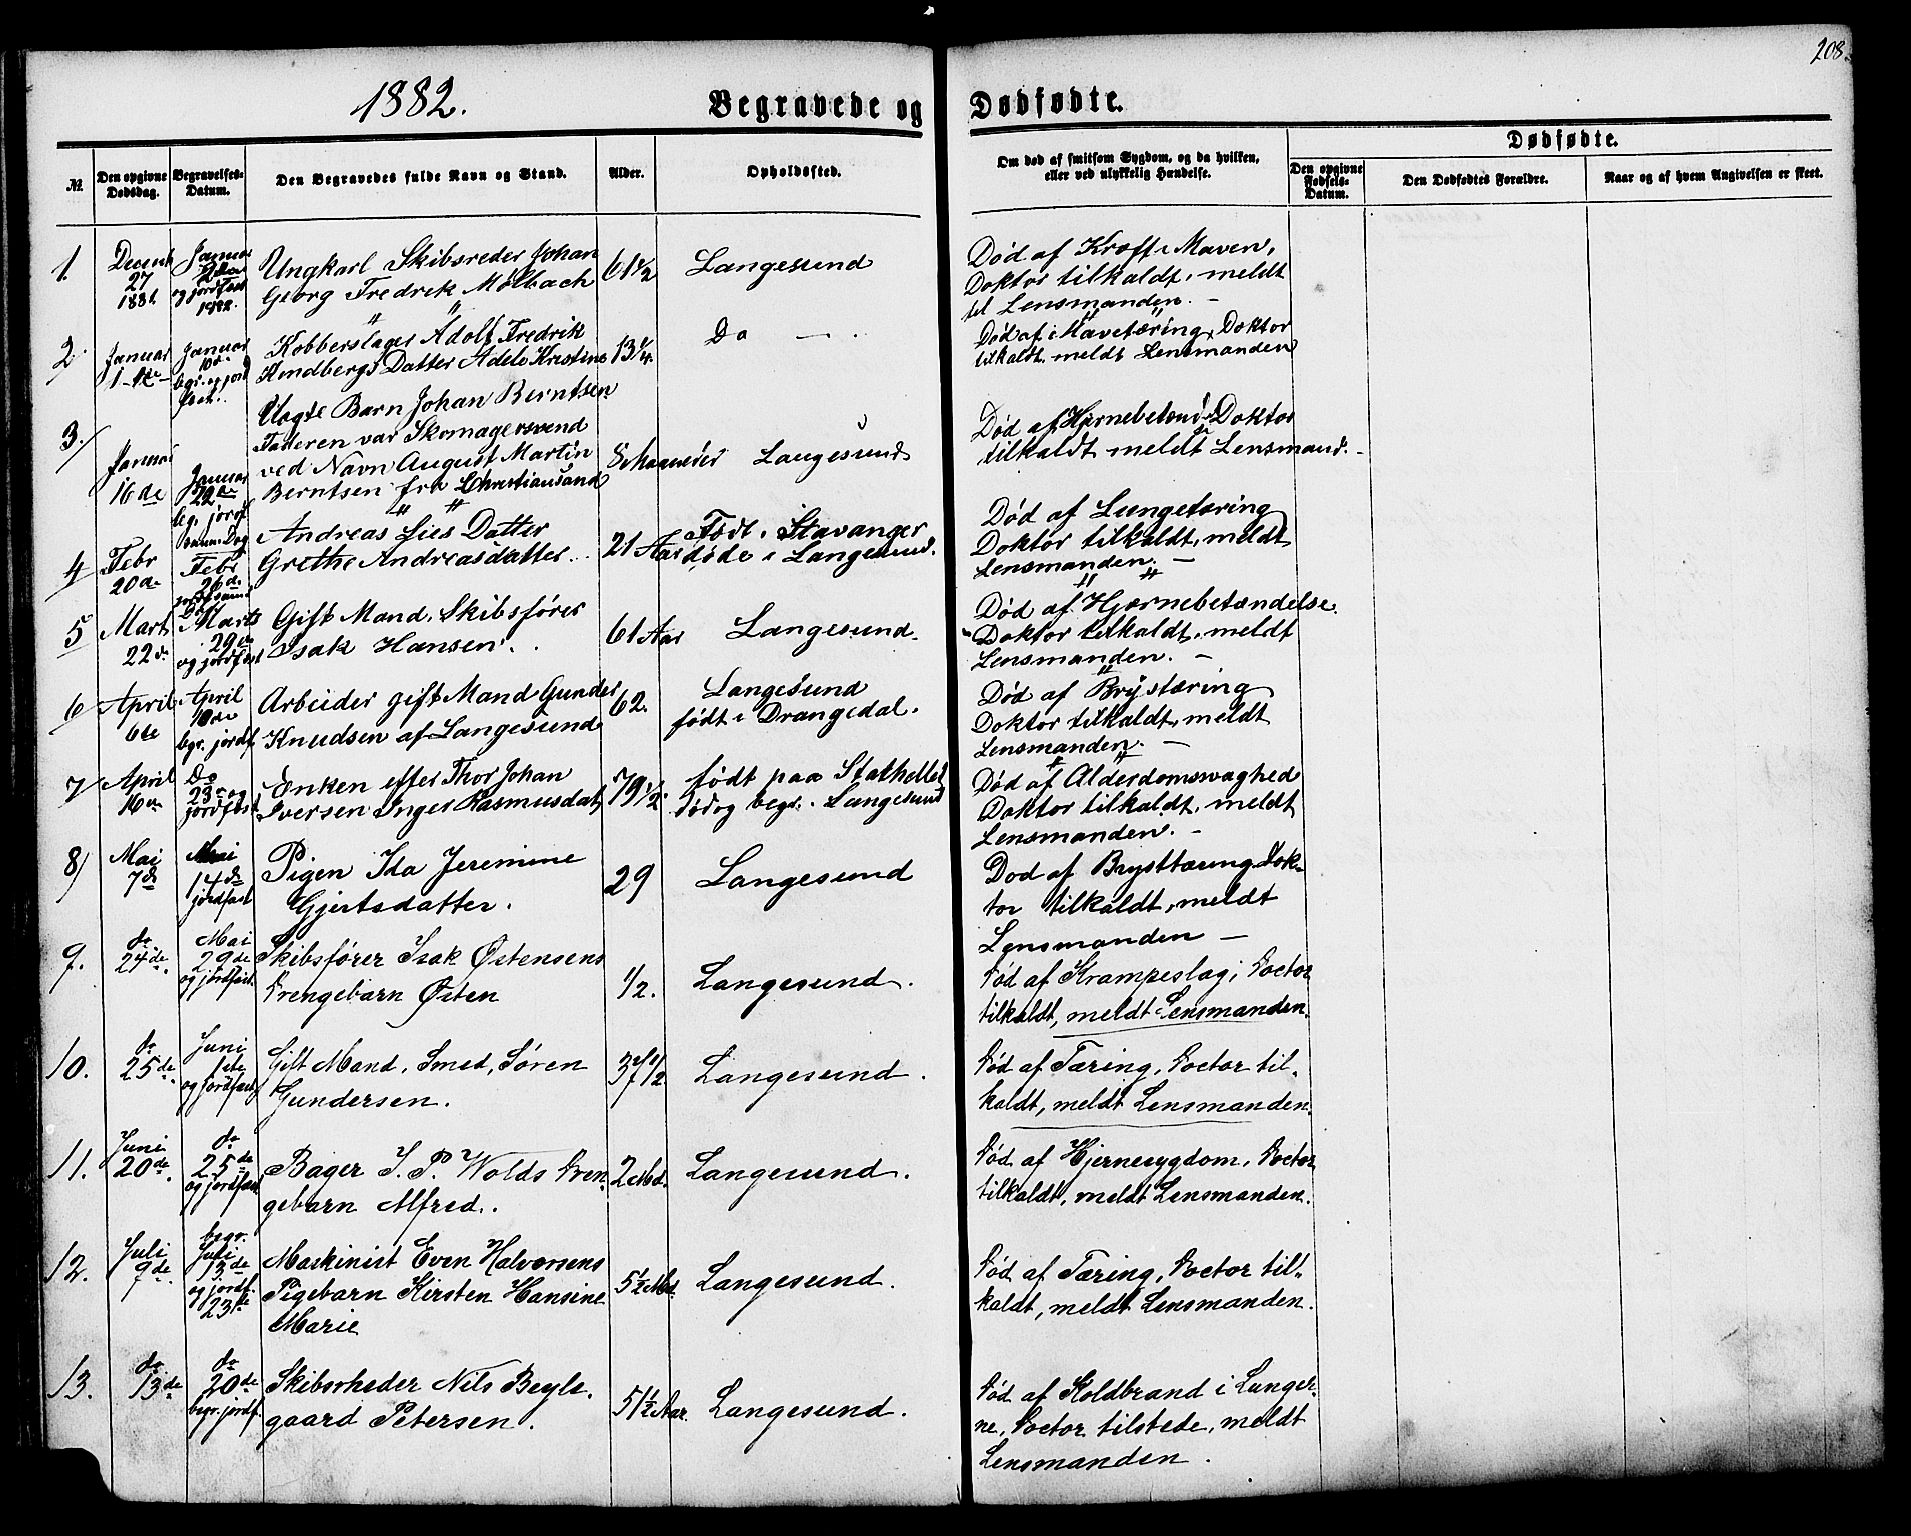 208.
1882. Begravede og Dødfødte.
Dødfødte.
№ Den opgivne Dødsdag. Begravelses-Datum. Den Begravedes fulde Navn og Stand. Alder. Opholdssted. Om død af smitsom Sygdom, og da hvilken, eller ved ulykkelig Hændelse. Den opgivne Fødsels-Datum. Den Dødfødtes Forældre. Naar og af hvem Angivelsen er skeet.
1. Decemb 27 1881 Januar
og jordfæst 1882.
Ungkarl Skibsreder Johan
Georg Fredrik Mølbach
61 1/2 Langesund
Død af Kræft i Maven,
Doktor tilkaldt, meldt
til Lensmanden. —
2. Januar 1–te – Januar 10de
begr. og jord
fæst.
Kobberslager Adolf Fredrik
Kindbergs Datter Adele Kristine
13 1/4 Do — .
Død af i Mavetæring, Doktor
tilkaldt meldt Lensmanden
3. Januar 16de Januar 22de
beg. jordf.
samme Dag
Uægte Barn Johan Berntsen
Faderen var Skomagersvend
ved Navn August Martin
Berntsen fra Christiansand
8 Maaneder Langesund
Død af Hjernebetænd. Doktor
tilkaldt meldt Lensmand. –
4 Febr 20de Febr 26de
jordf. samme
Dag
Andreas Lies Datter
Grethe Andreasdatter.
21 Aar Født i Stavanger
døde i Langesund.
Død af Lungetæring
Doktor tilkaldt, meldt
Lensmanden. —
5 Mart 22de Marts 29de
og jordfæst
Gift Mand, Skibsfører
Isak Hansen.
61 Aar Langesund.
Død af Hjærnebetændelse
Doktor tilkaldt, meldt
Lensmanden. —
6 April 6te April 10de
begr. jordf.
Arbeider gift Mand Gunder
Knudsen af Langesund
62. Langesund
født i Drangedal.
Død af Brystæring
Doktor tilkaldt, meldt
Lensmanden. —
7 April 16de Do 23de og
jordfæst
Enken efter Thor Johan
Iversen Inger Rasmusdat
79 1/2. født paa Stathelle
død og begr. i Langesund
Død af Alderdomsvaghed
Doktor tilkaldt, meldt
Lensmanden. —
8) Mai 7de Mai 14de
jordfæst
Pigen Ida Jeremine
Gjertsdatter.
29 Langesund
Død af Brysttæring Dok-
tor tilkaldt, meldt
Lensmanden —
9. do 24de. Mai 29de
og jordfæst.
Skibsfører Isak Østensens
Drengebarn Østen
1/2. Langesund.
Død af Krampeslag, Doctor
tilkaldt, meldt Lensmanden.
10. do 25de. Juni 1ste
og jordfæst
Gift Mand, Smed, Søren
Gundersen.
37 1/2 Langesund.
Død af Tæring, Doctor til-
kaldt, meldt Lensmanden.
11. Juni 20de. do 25de
og jordfæst
Bager I. P. Wolds Dren-
gebarn Alfred.
2 Md. Langesund.
Død af Hjernesygdom, Doctor
tilkaldt, meldt Lensmanden.
12. Juli 9de. begr. Juli 13de
og jordf. 23de
Maskinist Even Halvorsens
Pigebarn Kirsten Hansine
Marie
5 1/2 Md. Langesund.
Død af Tæring, Doctor til-
kaldt, meldt Lensmanden.
13. do 13de do 20de
begr. jordf.
Skibsrheder Nils Beyle-
gaard Petersen.
51 1/2 Aar. Langesund.
Død af Koldbrand i Lunger-
ne, Doctor tilstede, meldt
Lensmanden.